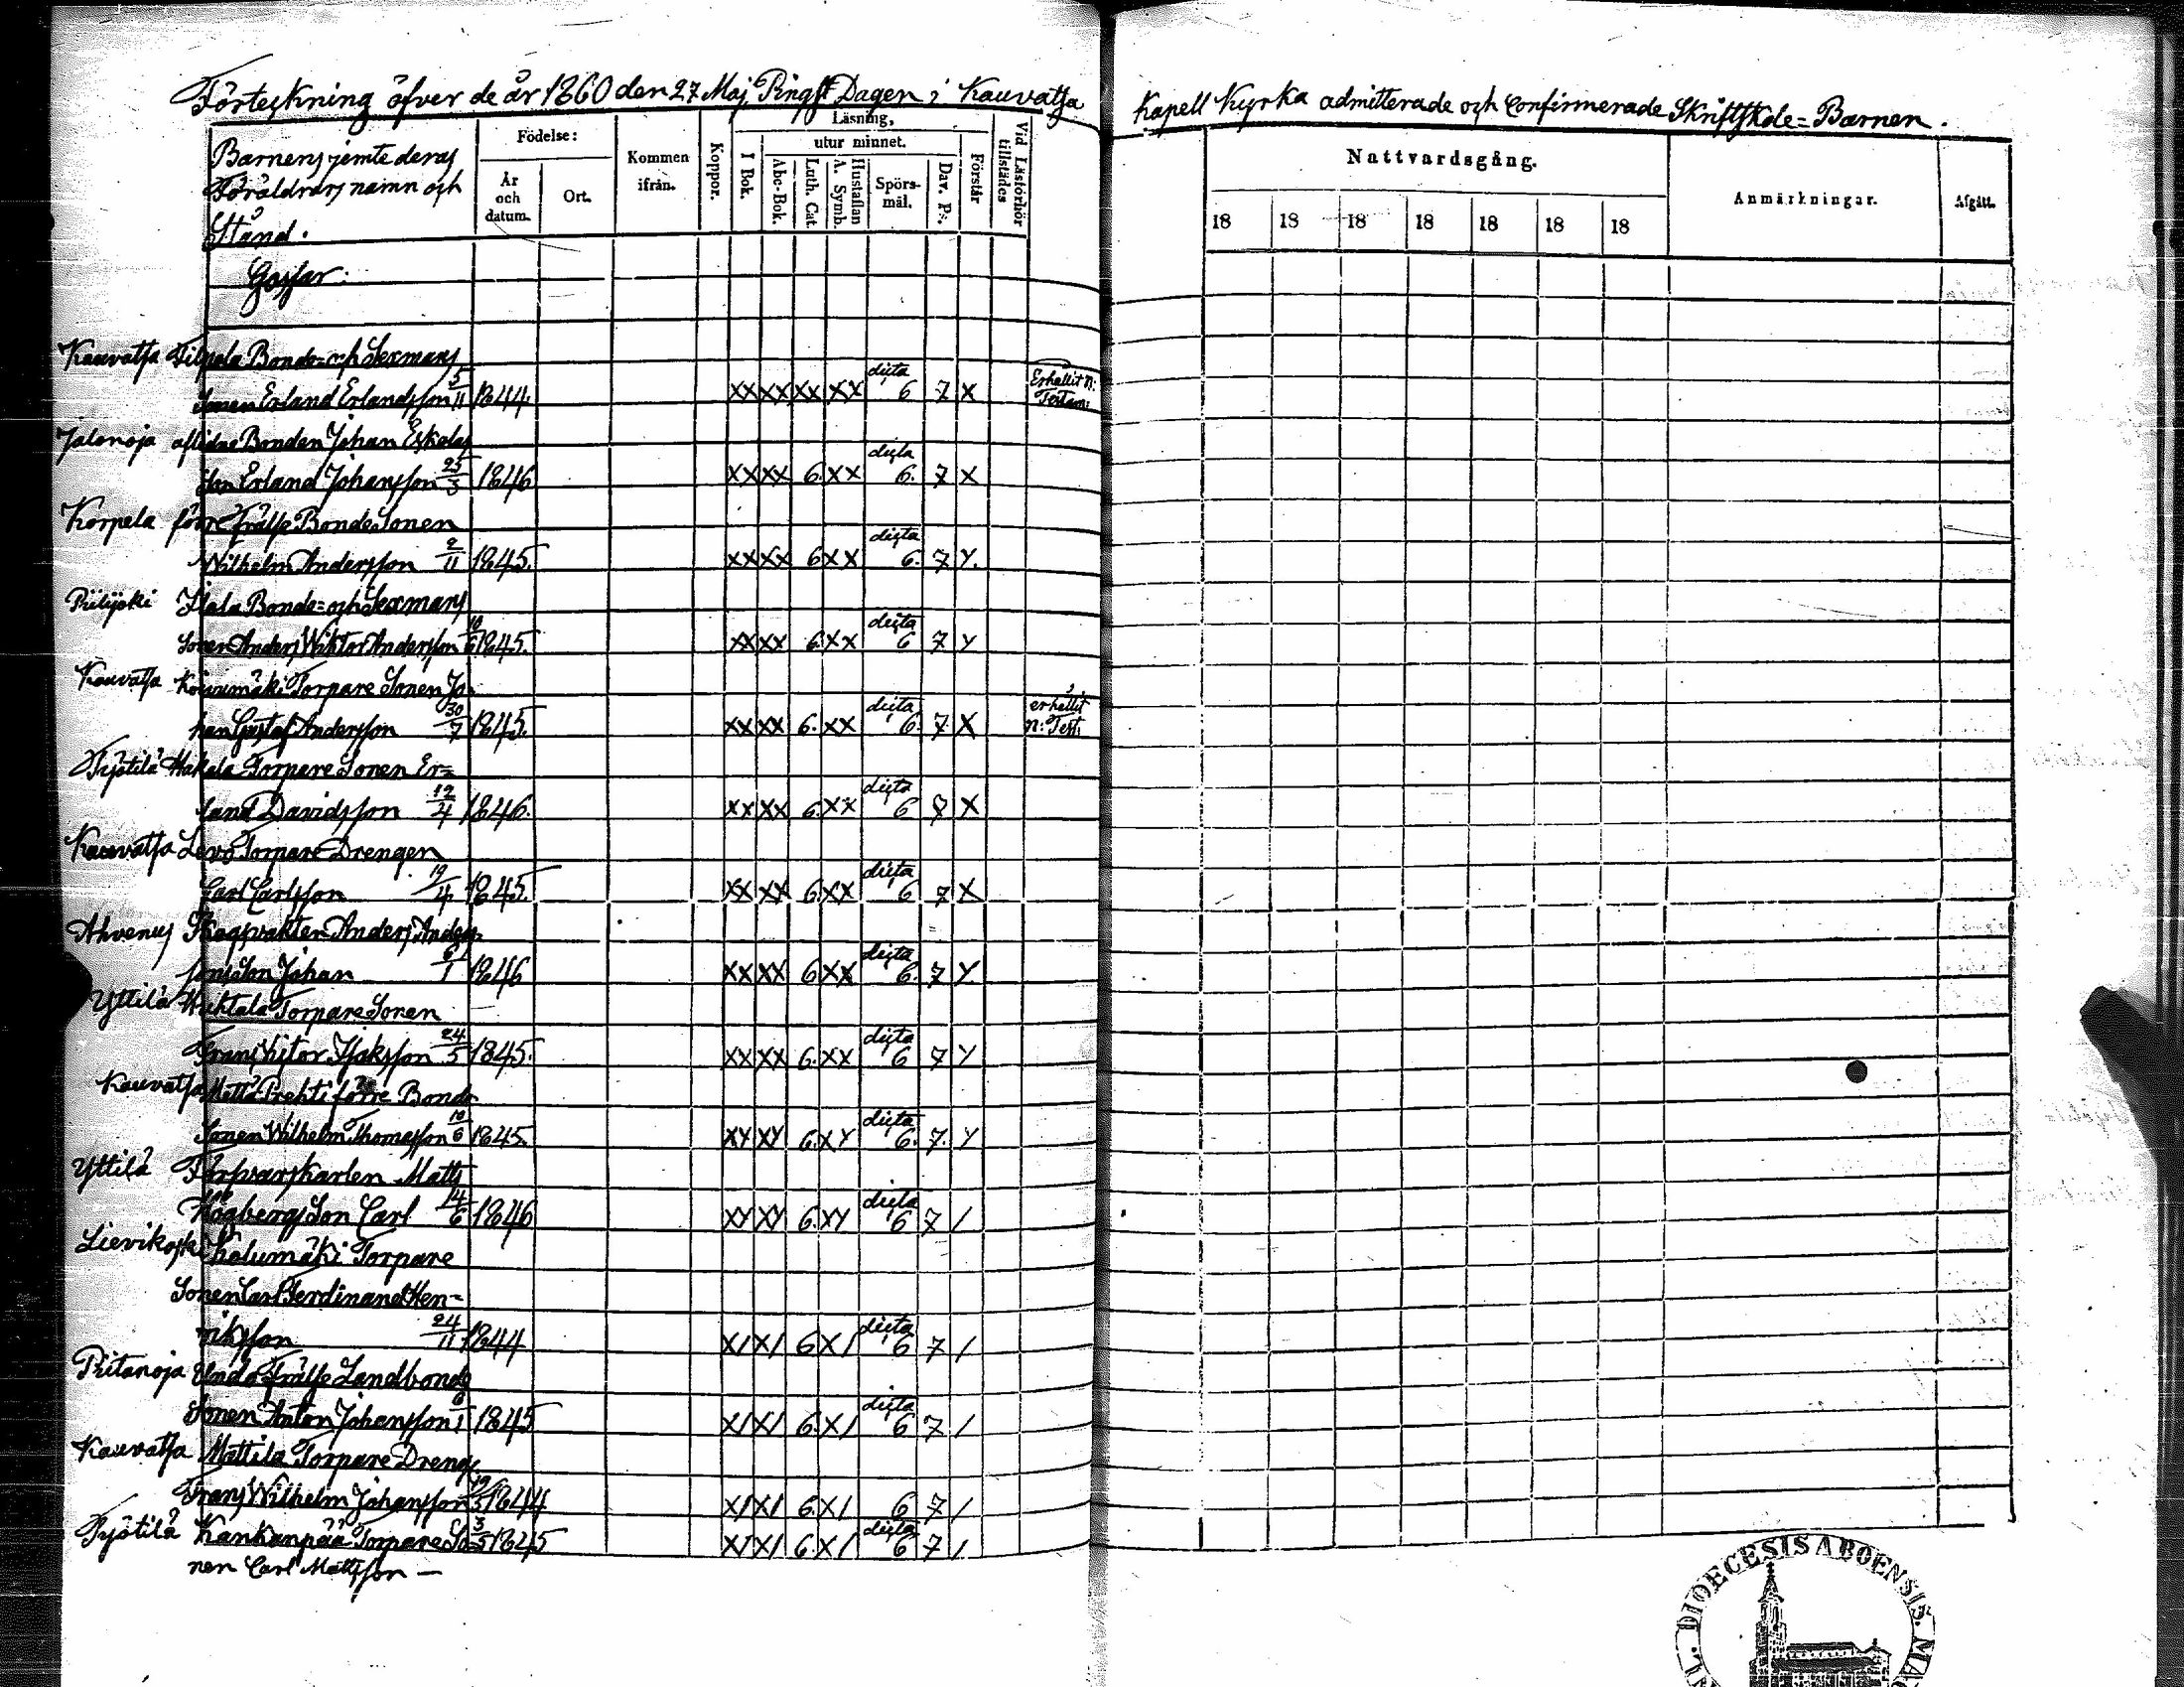 Förteskning öfver de år 1860 den 27 Maj, Pingst Dagen i Kauvatsa Kapell Kyrka admitterade och Confirmerade Skriftskole=Barnen.
Barnens jemte deras
Föräldrars namn och
Stånd.
Födelse:
År och datum.
Ort.
Kommen ifrån.
Koppor.
Läsning,
I Bok.
utur minnet.
Abc-Bok.
Luth. Cat.
Hustaflan A. Symb.
Spörsmål.
Dav. Ps.
Förstår
Vid Läsförhör tillstädes
Nattvardsgång.
18 18 18 18 18 18 18
Anmärkningar.
Afgått.
Gossar:
Kauvatsa Bonde- och Sexmans
Sonen Erland Erlandsson 5/11 1844. XX XX XX XX dicta 6 7 X Erhållit N: Testam:
Jalonoja aflidne Bonden Johan Eskolas
Son Erland Johansson 25/3 1846 XX XX 6. XX dicta 6. 7 X
Korpela förre Frälse Bonde Sonen
Wilhelm Andersson 2/11 1845. XX XX 6 XX dicta 6. 7 Y.
Piilijoki Bonde- och Sexmans
Sonen Anders Wiktor Andersson 10/6 1845. XX XX 6. XX dicta 6 7 Y
Kauvatsa Koivumäki Torpare Sonen Jo-
han Gustaf Andersson 30/7 1845. XX XX 6. XX dicta 6. 7 X erhållit n: Test.
Hakala Torpare Sonen Er=
land Davidsson 12/4 1846. XX XX 6. XX dicta 6 7 X
Kauvatsa Torpare Drengen
Carl Carlsson 19/4 1845. XX XX 6. XX dicta 6 7 X
Ahvenus Skogvakten Anders Anders-
sons Son Johan 6/1 1846 XX XX 6 XX dicta 6. 7 Y.
Yttilä Huhtala Torpare Sonen
Frans Victor Isaksson 24/5 1845. XX XX 6. XX dicta 6 7 Y
Kauvatsa förre Bonde
Sonen Wilhelm Thomasson 10/6 1845. XY XY 6. XY dicta 6. 7. Y
Yttilä Matts
Högbergs Son Carl 14/6 1846 XY XY 6. XY dicta 6 7 /
Lievikoski Torpare
Sonen Carl Ferdinand Hen-
riksson 24/11 1844 X/ X/ 6 X/ dicta 6 7 /
Piitanoja Frälse Landbonde
Sonen Anton Johansson 1845 X/ X/ 6. X/ dicta 6 7 /
Kauvatsa Mattila Torpare Dreng
Frans Wilhelm Johansson 1844 X/ X/ 6. X/ 6 7 /
Kankanpää Torpare So- 3/5 1845 X/ X/ 6 X/ dicta 6 7 /
nen Carl Mattsson —
DIOECESIS ABOENSIS.